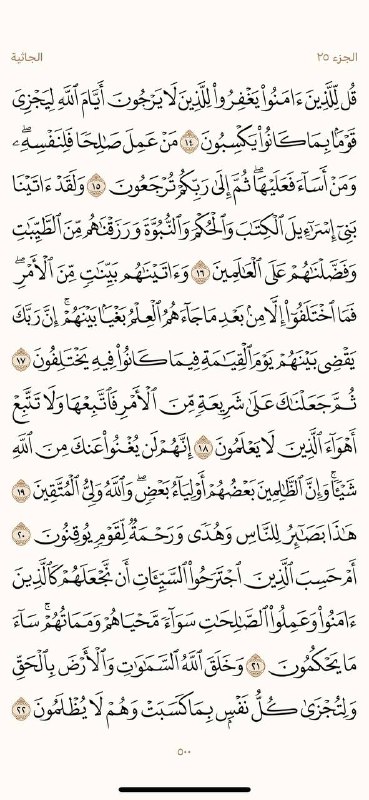 الجزء ٢٥ الجاثية
قُل لِّلَّذِينَ ءَامَنُوا۟ يَغْفِرُوا۟ لِلَّذِينَ لَا يَرْجُونَ أَيَّامَ ٱللَّهِ لِيَجْزِىَ
قَوْمًۢا بِمَا كَانُوا۟ يَكْسِبُونَ ١٤ مَنْ عَمِلَ صَـٰلِحًا فَلِنَفْسِهِۦ ۖ
وَمَنْ أَسَآءَ فَعَلَيْهَا ۖ ثُمَّ إِلَىٰ رَبِّكُمْ تُرْجَعُونَ ١٥ وَلَقَدْ ءَاتَيْنَا
بَنِىٓ إِسْرَٰٓءِيلَ ٱلْكِتَـٰبَ وَٱلْحُكْمَ وَٱلنُّبُوَّةَ وَرَزَقْنَـٰهُم مِّنَ ٱلطَّيِّبَـٰتِ
وَفَضَّلْنَـٰهُمْ عَلَى ٱلْعَـٰلَمِينَ ١٦ وَءَاتَيْنَـٰهُم بَيِّنَـٰتٍ مِّنَ ٱلْأَمْرِ ۖ
فَمَا ٱخْتَلَفُوٓا۟ إِلَّا مِنۢ بَعْدِ مَا جَآءَهُمُ ٱلْعِلْمُ بَغْيًۢا بَيْنَهُمْ ۚ إِنَّ رَبَّكَ
يَقْضِى بَيْنَهُمْ يَوْمَ ٱلْقِيَـٰمَةِ فِيمَا كَانُوا۟ فِيهِ يَخْتَلِفُونَ ١٧
ثُمَّ جَعَلْنَـٰكَ عَلَىٰ شَرِيعَةٍ مِّنَ ٱلْأَمْرِ فَٱتَّبِعْهَا وَلَا تَتَّبِعْ
أَهْوَآءَ ٱلَّذِينَ لَا يَعْلَمُونَ ١٨ إِنَّهُمْ لَن يُغْنُوا۟ عَنكَ مِنَ ٱللَّهِ
شَيْـًٔا ۚ وَإِنَّ ٱلظَّـٰلِمِينَ بَعْضُهُمْ أَوْلِيَآءُ بَعْضٍ ۖ وَٱللَّهُ وَلِىُّ ٱلْمُتَّقِينَ ١٩
هَـٰذَا بَصَـٰٓئِرُ لِلنَّاسِ وَهُدًى وَرَحْمَةٌ لِّقَوْمٍ يُوقِنُونَ ٢٠
أَمْ حَسِبَ ٱلَّذِينَ ٱجْتَرَحُوا۟ ٱلسَّيِّـَٔاتِ أَن نَّجْعَلَهُمْ كَٱلَّذِينَ
ءَامَنُوا۟ وَعَمِلُوا۟ ٱلصَّـٰلِحَـٰتِ سَوَآءً مَّحْيَاهُمْ وَمَمَاتُهُمْ ۚ سَآءَ
مَا يَحْكُمُونَ ٢١ وَخَلَقَ ٱللَّهُ ٱلسَّمَـٰوَٰتِ وَٱلْأَرْضَ بِٱلْحَقِّ
وَلِتُجْزَىٰ كُلُّ نَفْسٍۭ بِمَا كَسَبَتْ وَهُمْ لَا يُظْلَمُونَ ٢٢
٥٠٠